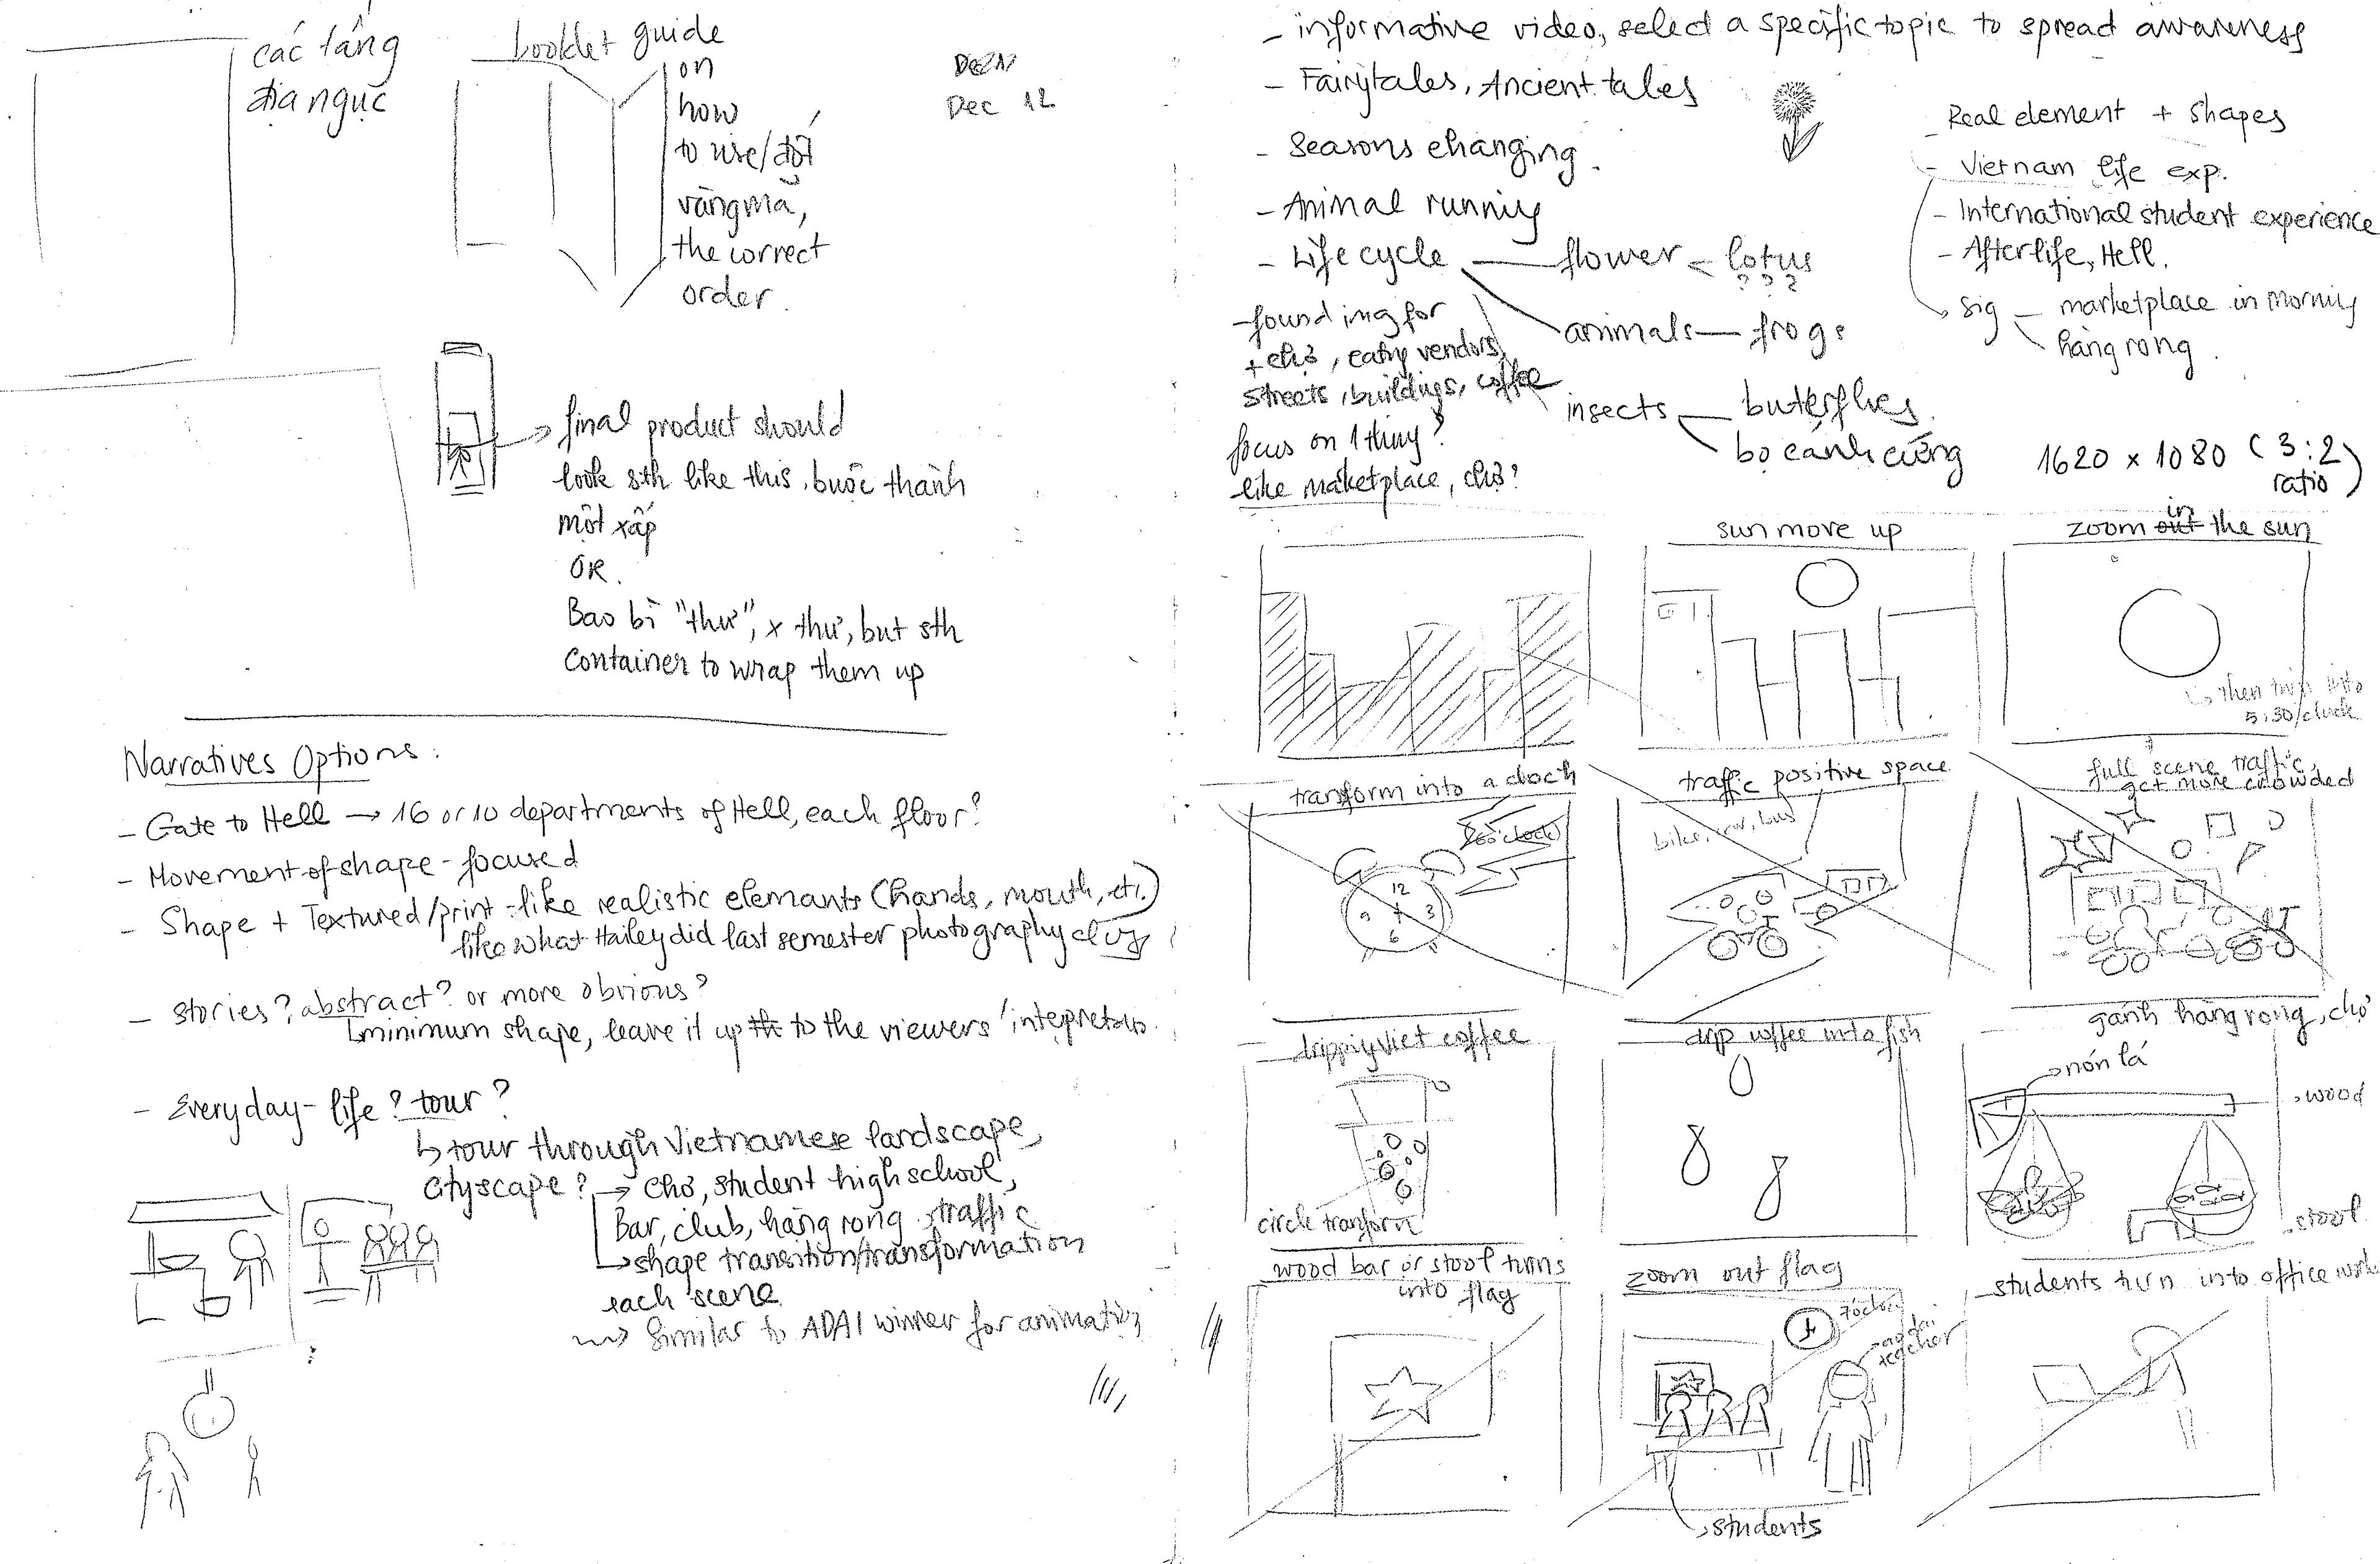 các tầng
địa ngục
booklet guide
on
how
to use/đốt
vàng mã,
the correct
order.
Dec 12
final product should
look sth like this, buộc thành
một xấp
OR.
Bao bì "thư", x thư, but sth
container to wrap them up
Narratives Options:
- Gate to Hell → 16 or 10 departments of Hell, each floor?
- Movement of shape - focused
- Shape + Textured/print-like realistic elemants (hands, mouth, etc.)
like what Hailey did last semester photography
- Stories? abstract? or more obvious?
minimum shape, leave it up to the viewers'
- Everyday-life? tour?
↳ tour through Vietnamese landscape,
cityscape? → chợ, student high school,
Bar, club, hàng rong, traffic
↳ shape transition/transformation
each scene
Similar to ADAI winner for animation
- informative video, select a specific topic to spread awareness
- Fairytales, Ancient tales
- Seasons changing.
- Animal running
- Life cycle — flower < lotus
? ? ?
animals — frogs
insects — butterflies
bọ cánh cứng
- found img for
+ chợ, eating vendors,
streets, buildings, coffee
focus on 1 thing?
like maketplace, chợ?
- Real element + Shapes
- Vietnam life exp.
- International student experience
- Afterlife, Hell.
sig — marketplace in morning
hàng rong.
1620 x 1080 (3:2)
ratio
sun move up
in
zoom out the sun
then turn into
5:30/clock
transform into a clock
12
9
3
6
traffic positive space
full scene traffic,
get more crowded
drippiy viet coffee
circle tranform
drip coffee into fish
gánh hàng rong, chợ
nón lá
wood
stool
wood bar or stool turns
into flag
zoom out flag
teacher
students
students turn into office